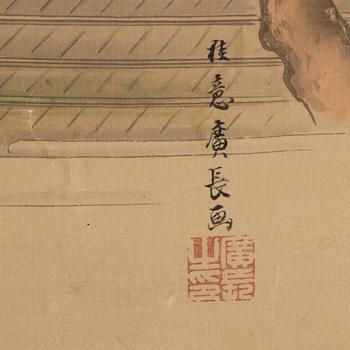 桂意廣長画